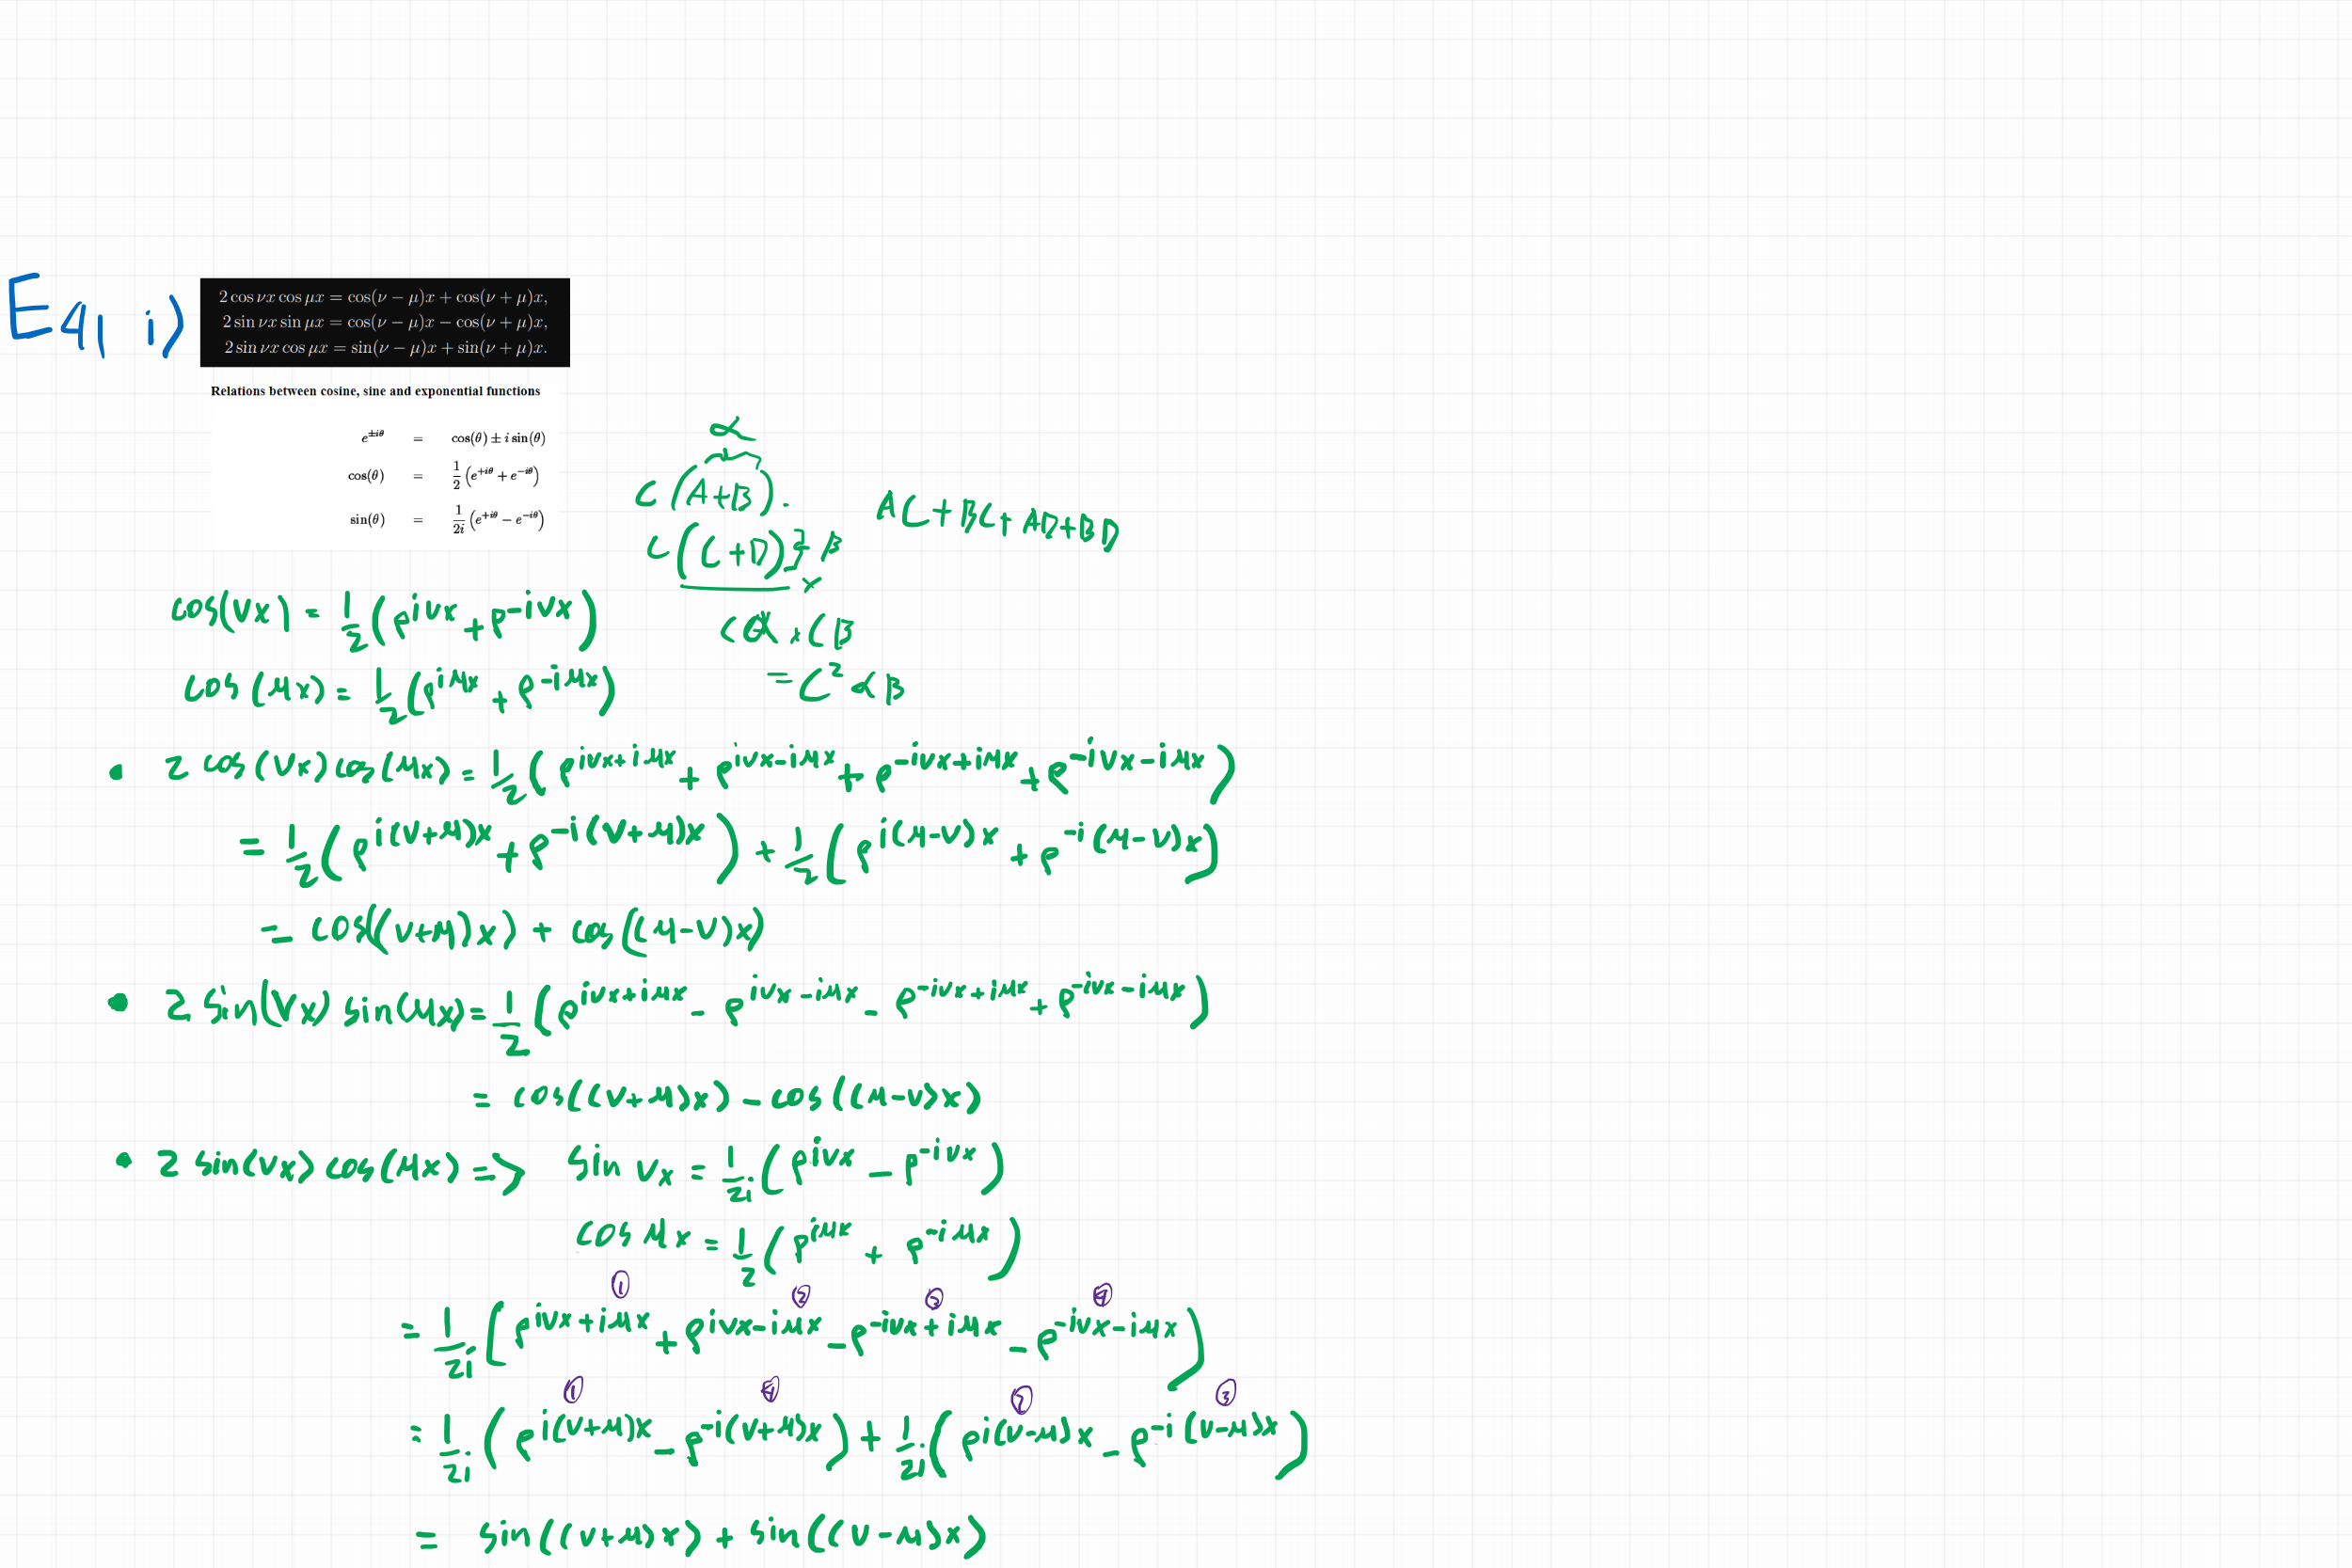 E41 i)
2 cos νx cos μx = cos(ν − μ)x + cos(ν + μ)x,
2 sin νx sin μx = cos(ν − μ)x − cos(ν + μ)x,
2 sin νx cos μx = sin(ν − μ)x + sin(ν + μ)x.
Relations between cosine, sine and exponential functions
e^{±iθ} = cos(θ) ± i sin(θ)
cos(θ) = 1/2 (e^{+iθ} + e^{−iθ})
sin(θ) = 1/2i (e^{+iθ} − e^{−iθ})
α
C(A+B).
C((C+D)} β
×
Cα × Cβ
= C² αβ
AC+BC+AD+BD
cos(νx) = 1/2 (e^{iνx} + e^{-iνx})
cos(μx) = 1/2 (e^{iμx} + e^{-iμx})
• 2 cos(νx) cos(μx) = 1/2 (e^{iνx+iμx} + e^{iνx-iμx} + e^{-iνx+iμx} + e^{-iνx-iμx})
= 1/2 (e^{i(ν+μ)x} + e^{-i(ν+μ)x}) + 1/2 (e^{i(μ-ν)x} + e^{-i(μ-ν)x})
= cos((ν+μ)x) + cos((μ-ν)x)
• 2 sin(νx) sin(μx) = 1/2 (e^{iνx+iμx} - e^{iνx-iμx} - e^{-iνx+iμx} + e^{-iνx-iμx})
= cos((ν+μ)x) - cos((μ-ν)x)
• 2 sin(νx) cos(μx) => sin νx = 1/2i (e^{iνx} - e^{-iνx})
cos μx = 1/2 (e^{iμx} + e^{-iμx})
① ② ③ ④
= 1/2i [e^{iνx+iμx} + e^{iνx-iμx} - e^{-iνx+iμx} - e^{-iνx-iμx})
① ④ ② ③
= 1/2i (e^{i(ν+μ)x} - e^{-i(ν+μ)x}) + 1/2i (e^{i(ν-μ)x} - e^{-i(ν-μ)x})
= sin((ν+μ)x) + sin((ν-μ)x)